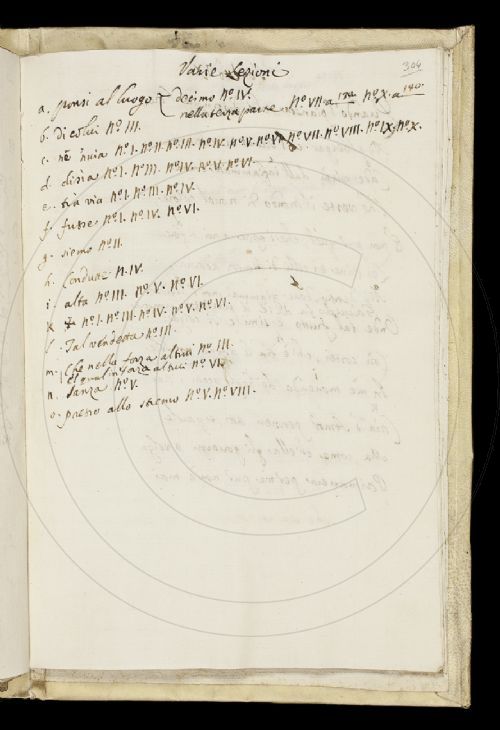 304
Varie Lezioni
a. ponsi al luogo { decimo nº IV.
nella terza parte nº VII. a nº X. a
b. Di colui nº III.
c. nº I. nº II. nº III. nº IV. nº V. nº VI. nº VII. nº VIII. nº IX. nº X.
d. diria nº I. nº III. nº IV. nº V. nº VI.
e. tra via nº I. nº III. nº IV.
f. fusse nº I. nº IV. nº VI.
g. siemo nº II.
h. Condusse n. IV.
i. alta nº III. nº V. nº VI.
K nº I. nº III. nº IV. nº V. nº VI.
l. Tal vendetta nº III.
m. Che nella forza altrui nº III.
altrui nº VI.
n. Sanza nº V.
o. presso allo stremo nº V. nº VIII.